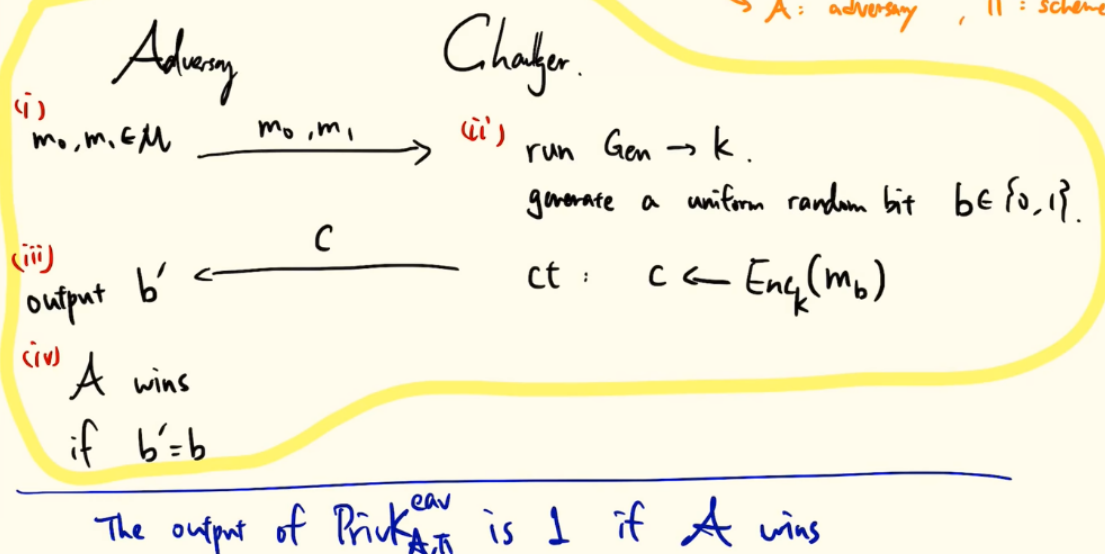 A: adversary , Π : scheme
Adversary Challger.
(i) m₀, m₁ ∈ M
m₀, m₁
(ii) run Gen → k.
generate a uniform random bit b ∈ {0, 1}.
(iii) output b′
C
ct : c ← Encₖ(m_b)
(iv) A wins
if b′ = b
The output of PrivK^{eav}_{A,Π} is 1 if A wins